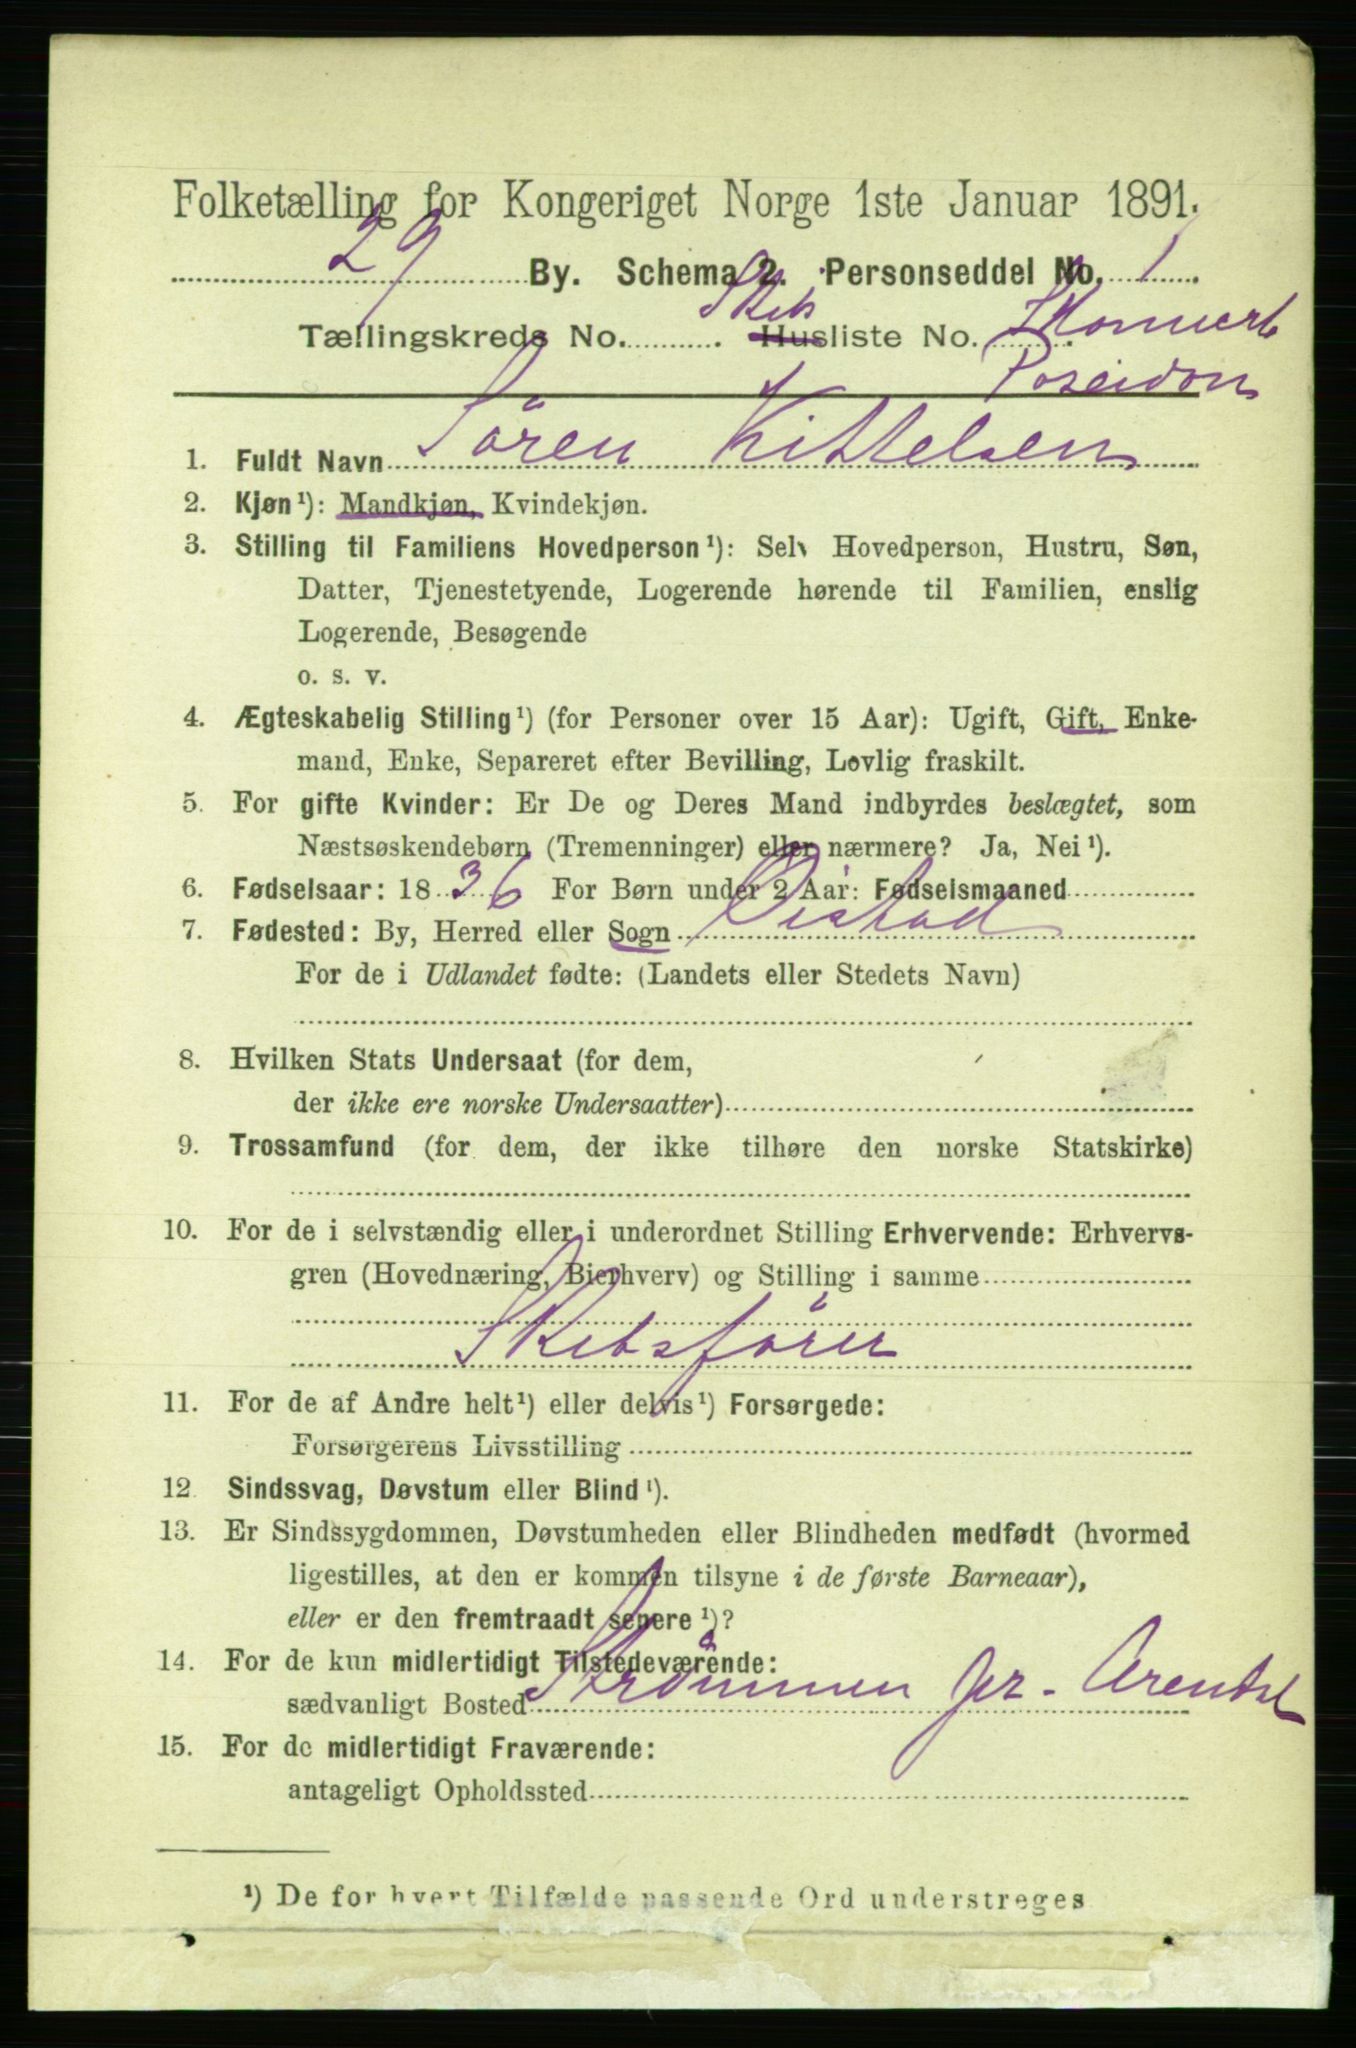 Folketælling for Kongeriget Norge 1ste Januar 1891.
29 By. Schema 2. Personseddel No. 1
Tællingskreds No. ........ . Skibs Husliste No. Skonnert
Poseidon
1. Fuldt Navn Sören Kittelsen
2. Kjøn¹): Mandkjøn, Kvindekjøn.
3. Stilling til Familiens Hovedperson¹): Selv Hovedperson, Hustru, Søn,
Datter, Tjenestetyende, Logerende hørende til Familien, enslig
Logerende, Besøgende
o. s. v.
4. Ægteskabelig Stilling¹) (for Personer over 15 Aar): Ugift, Gift, Enke-
mand, Enke, Separeret efter Bevilling, Lovlig fraskilt.
5. For gifte Kvinder: Er De og Deres Mand indbyrdes beslægtet, som
Næstsøskendebørn (Tremenninger) eller nærmere? Ja, Nei¹).
6. Fødselsaar: 1836 For Børn under 2 Aar: Fødselsmaaned
7. Fødested: By, Herred eller Sogn Öiestad
For de i Udlandet fødte: (Landets eller Stedets Navn)
8. Hvilken Stats Undersaat (for dem,
der ikke ere norske Undersaatter)
9. Trossamfund (for dem, der ikke tilhøre den norske Statskirke)
10. For de i selvstændig eller i underordnet Stilling Erhvervende: Erhvervs-
gren (Hovednæring, Bierhverv) og Stilling i samme
Skibsförer
11. For de af Andre helt¹) eller delvis¹) Forsørgede:
Forsørgerens Livsstilling
12. Sindssvag, Døvstum eller Blind¹).
13. Er Sindssygdommen, Døvstumheden eller Blindheden medfødt (hvormed
ligestilles, at den er kommen tilsyne i de første Barneaar),
eller er den fremtraadt senere¹)?
14. For de kun midlertidigt Tilstedeværende:
sædvanligt Bosted Strömmen pr. Arendal
15. For de midlertidigt Fraværende:
antageligt Opholdssted
¹) De for hvert Tilfælde passende Ord understreges